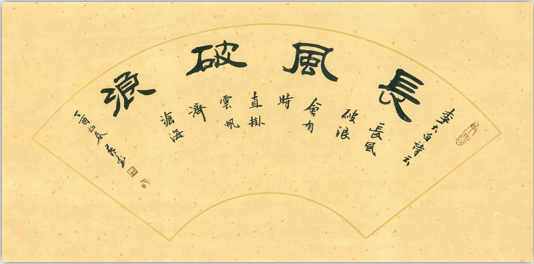 長風破浪
李太白詩云
長風
破浪
會有
時
直掛
雲帆
濟
滄海
丁酉